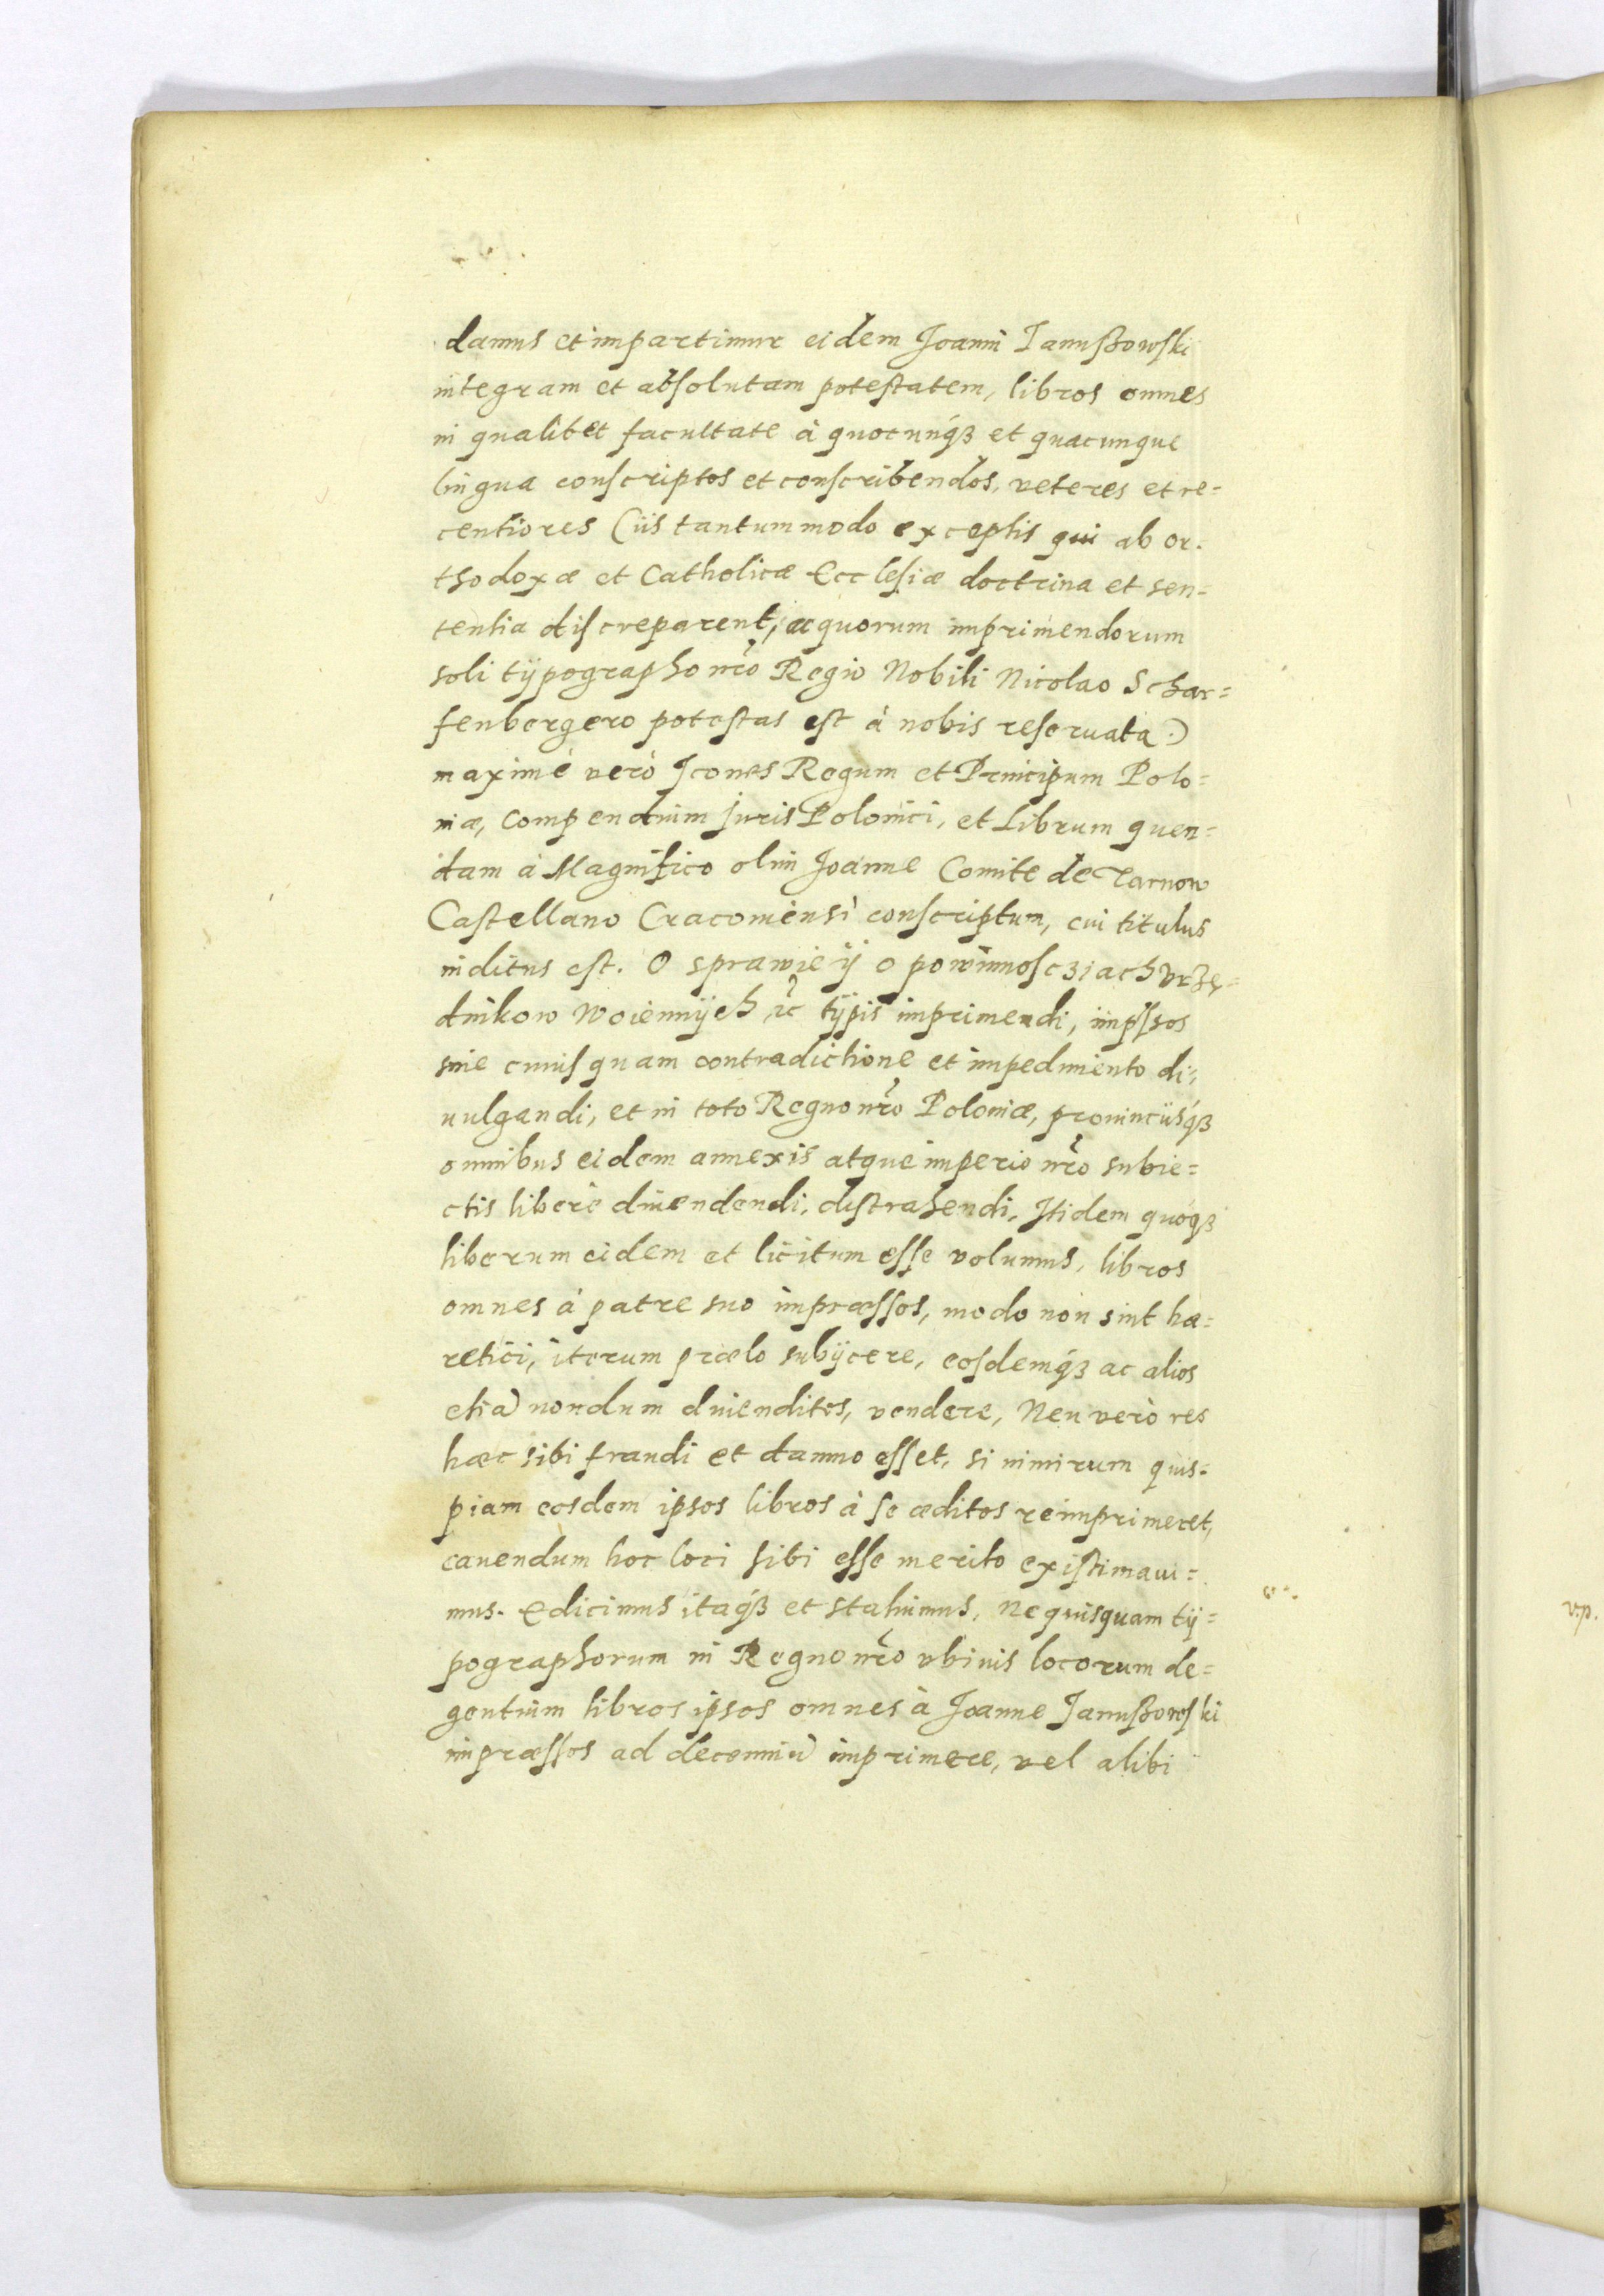 damus et impartimur eidem Joanni Janußowſki
integram et absolutam poteſtatem, libros omnes
in qualibet facultate à quocunq́ꝫ et quacunque
lingua conſcriptos et conſcribendos, veteres et re=
centiores (iis tantummodo exceptis qui ab or-
thodoxæ et Catholicæ Eccleſiæ doctrina et sen=
tentia diſcreparent, quorum imprimendorum
soli typographo nr̃o Regio Nobili Nicolao Schar=
fenbergero poteſtas eſt à nobis reſeruata.)
maximè verò Icones Regum et Principum Polo=
niæ, Compendium juris Polonici, et Librum quen=
dam à Magnifico olim Joanne Comite de Tarnow
Caſtellano Cracouiensi conſcriptum, cui titulus
inditus eſt. O sprawie ÿ o powinnoſcziach vrzę=
dnikow woiennÿch, ꝛc̃ tÿpis imprimendi, imp̃ſsos
sine cuiuſquam contradictione et impedimento di=
uulgandi, et in toto Regno nr̃o Poloniæ, prouinciisq́ꝫ
omnibus eidem annexis atque imperio nr̃o subie=
ctis liberè diuendendi, diſtrahendi, Itidem quoq́ꝫ
liberum eidem et licitum eſſe volumus, libros
omnes à patre suo impræſſos, modo non sint hæ=
retici, iterum prælo subÿcere, eosdemq́ꝫ ac alios
etiã nondum diuenditos, vendere, Neu verò res
hæc sibi fraudi et damno eſſet, si nimirum quis=
piam eosdem ipsos libros à ſe æditos reimprimeret,
cauendum hoc loci ſibi eſſe merito exiſtimaui=
mus. Edicimus itaq́ꝫ et statuimus, ne quisquam tÿ=
pographorum in Regno nr̃o vbiuis locorum de=
gentium libros ipsos omnes à Joanne Janußowſki
impræſſos ad decenniũ imprimere, vel alibi
v.p.